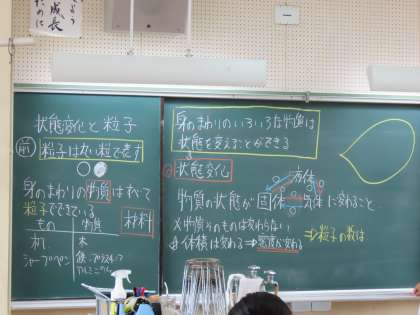 成長
ために
状態変化と粒子
前 粒子は丸い粒で表す
身のまわりの物質はすべて
粒子でできている
材料
もの 物質
机 木
シャープペン 鉄・プラスチック
アルミニウム
身のまわりのいろいろな物質は
状態を変えることができる
状態変化
液体
物質の状態が固体 気体に変わること
物質そのものは変わらない
体積は変わる⇒密度が変わる
⇒粒子の数は